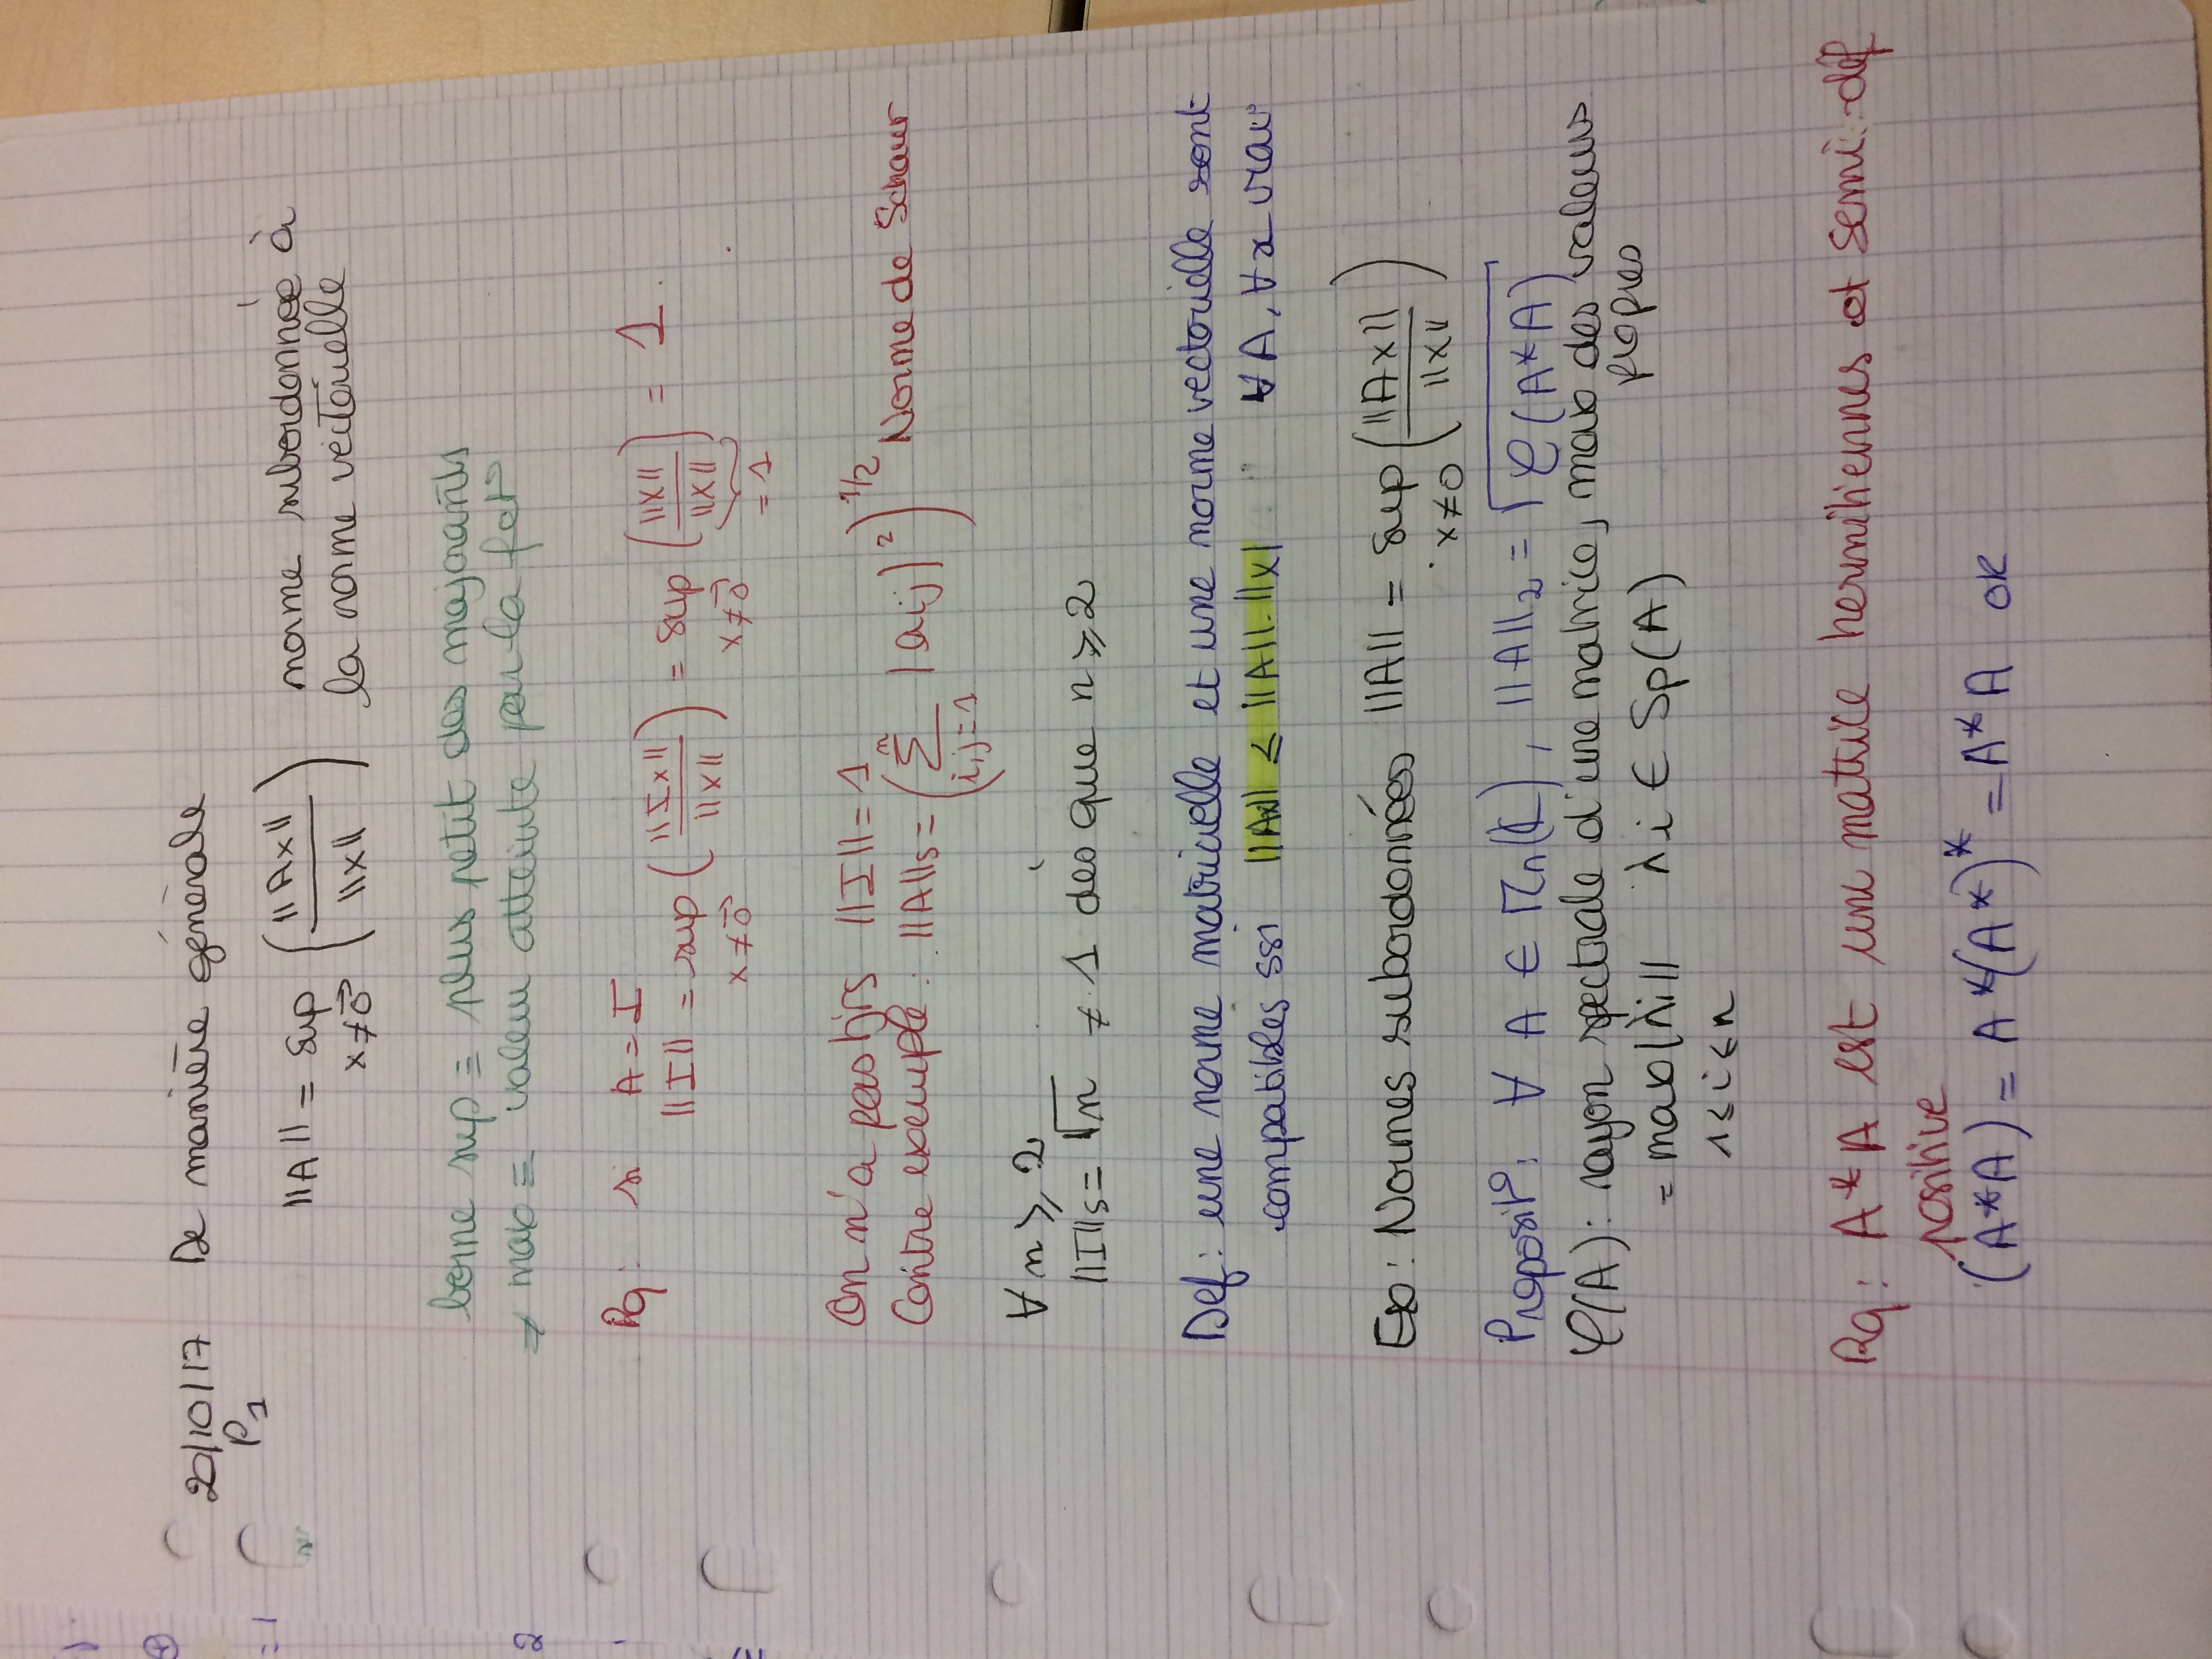 20/10/17 De manière générale
P1
||A|| = sup ( ||Ax|| / ||x|| ) norme subordonnée à
x≠0⃗ la norme vectorielle
borne sup = plus petit des majorants
≠ max = valeur atteinte par la fct°
Rq : si A = I
||I|| = sup ( ||Ix|| / ||x|| ) = sup ( ||x|| / ||x|| ) = 1.
x≠0⃗ x≠0⃗ = 1
On n'a pas tjrs ||I|| = 1
Contre exemple : ||A||s = ( Σ |aij|² )^1/2 Norme de Schaur
n
i,j=1
∀ n ⩾ 2
||I||s = √n ≠ 1 dès que n ⩾ 2
Def : une norme matricielle et une norme vectorielle sont
compatibles ssi ||Ax|| ≤ ||A||.||x| ∀ A, ∀ x vrai
Ex : Normes subordonnées ||A|| = sup ( ||Ax|| / ||x|| )
x≠0
Proposit° : ∀ A ∈ Mn(ℂ), ||A||2 = √φ(A*A)
φ(A) : rayon spectrale d'une matrice, max des valeurs
propres
= max |λi|| λi ∈ Sp(A)
1≤i≤n
Rq : A*A est une matrice hermitiennes et semi-déf
positive
(A*A) = A*(A*)* = A*A ok
= 1
2